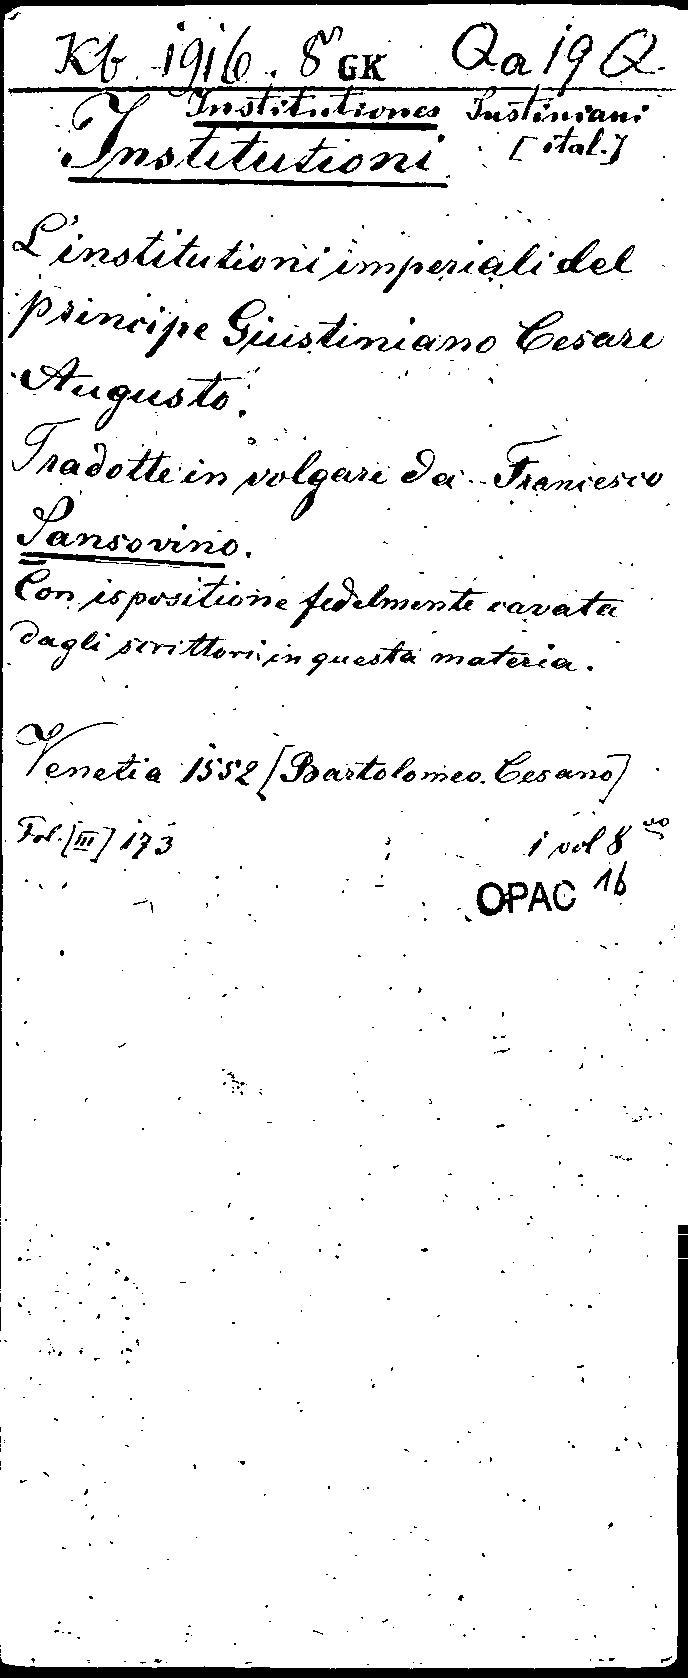 Kb 1916. 8° GK Qa 19 Q
Institutiones Iustiniani
[ital.]
Institutioni
L'institutioni imperiali del
principe Giustiniano Cesare
Augusto.
Tradotte in volgare da Francesco
Sansovino.
Con ispositione fedelmente cavata
dagli scrittori in questa materia.
Venetia 1552 [Bartolomeo Cesano]
Fol. [III] 173
1 vol 8vo
OPAC 16